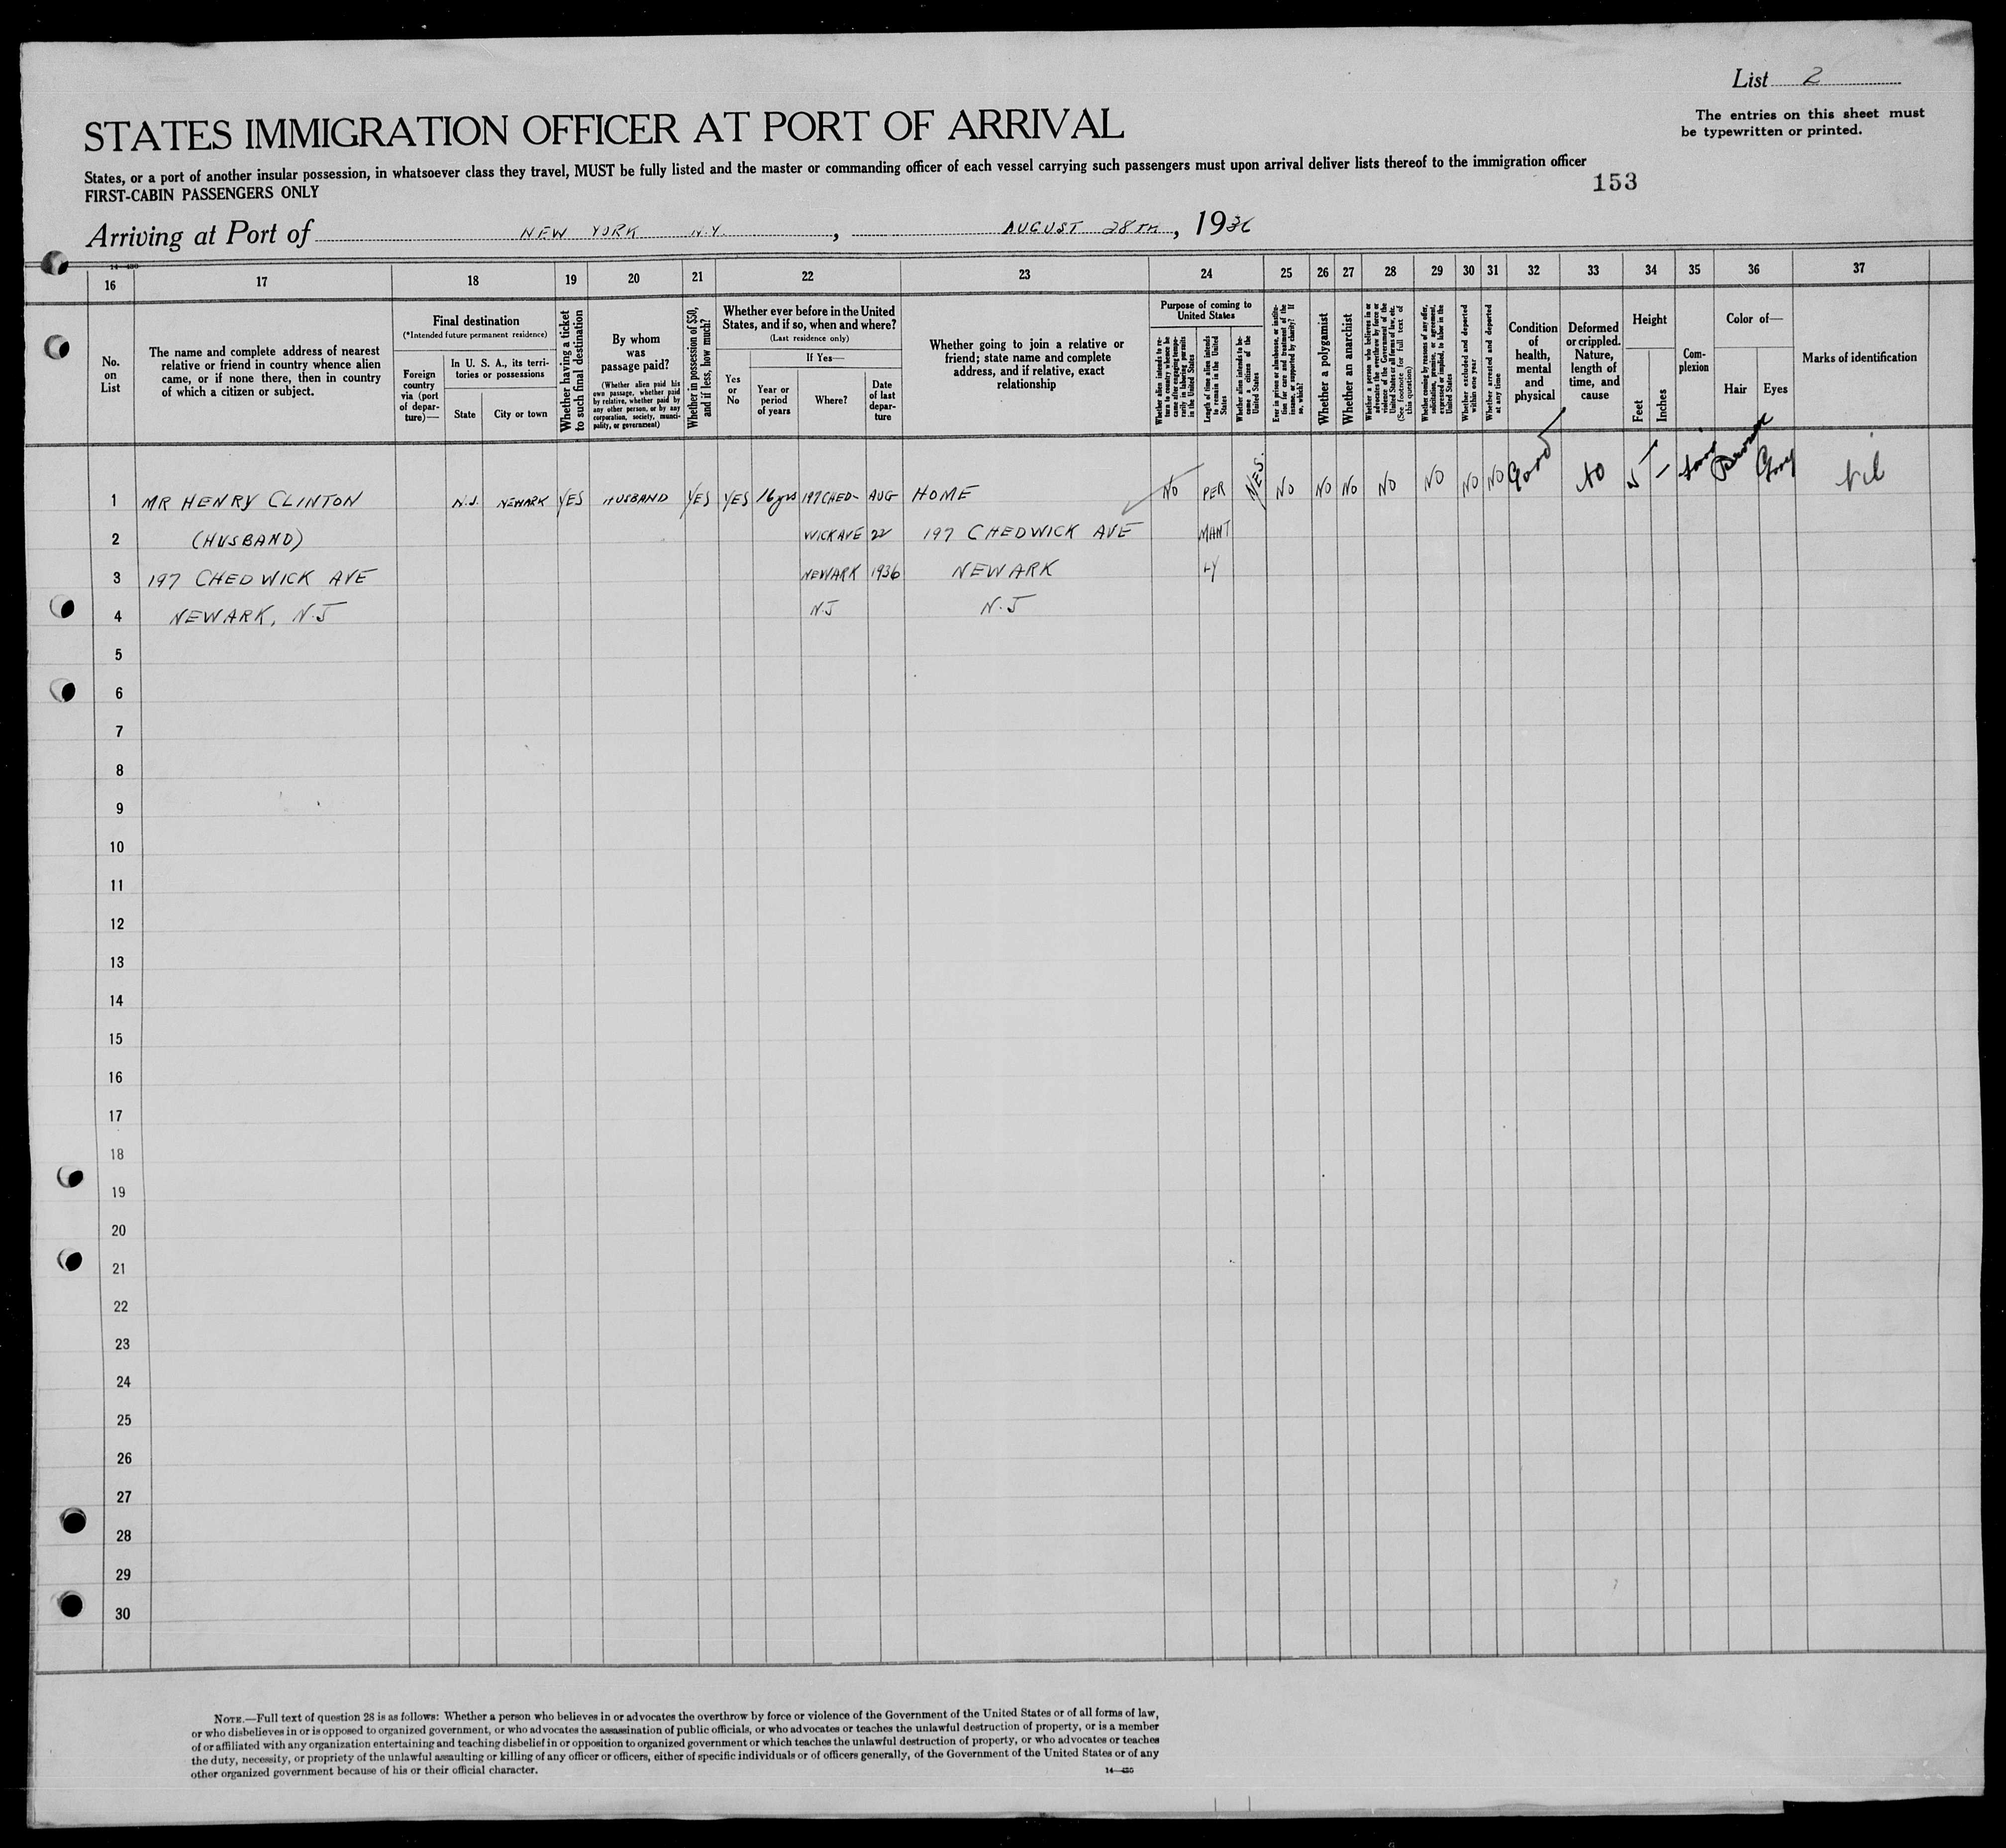 List 2
The entries on this sheet must
be typewritten or printed.
STATES IMMIGRATION OFFICER AT PORT OF ARRIVAL
States, or a port of another insular possession, in whatsoever class they travel, MUST be fully listed and the master or commanding officer of each vessel carrying such passengers must upon arrival deliver lists thereof to the immigration officer
FIRST-CABIN PASSENGERS ONLY
153
Arriving at Port of NEW YORK N.Y. , AUGUST 28TH , 1936
14—430
16 17 18 19 20 21 22 23 24 25 26 27 28 29 30 31 32 33 34 35 36 37
No.
on
List
The name and complete address of nearest
relative or friend in country whence alien
came, or if none there, then in country
of which a citizen or subject.
Final destination
(*Intended future permanent residence)
Foreign
country
via (port
of depar-
ture)—
In U. S. A., its terri-
tories or possessions
State
City or town
Whether having a ticket
to such final destination
By whom
was
passage paid?
(Whether alien paid his
own passage, whether paid
by relative, whether paid by
any other person, or by any
corporation, society, munici-
pality, or government)
Whether in possession of $50,
and if less, how much?
Whether ever before in the United
States, and if so, when and where?
(Last residence only)
Yes
or
No
If Yes—
Year or
period
of years
Where?
Date
of last
depar-
ture
Whether going to join a relative or
friend; state name and complete
address, and if relative, exact
relationship
Purpose of coming to
United States
Whether alien intends to re-
turn to country whence he
came after engaging tempo-
rarily in laboring pursuits
in the United States
Length of time alien intends
to remain in the United
States
Whether alien intends to be-
come a citizen of the
United States
Ever in prison or almshouse, or institu-
tion for care and treatment of the
insane, or supported by charity? If
so, which?
Whether a polygamist
Whether an anarchist
Whether a person who believes in or
advocates the overthrow by force or
violence of the Government of the
United States or all forms of law, etc.
(See footnote for full text of
this question)
Whether coming by reasons of any offer,
solicitation, promise, or agreement,
expressed or implied, to labor in the
United States
Whether excluded and deported
within one year
Whether arrested and deported
at any time
Condition
of
health,
mental
and
physical
Deformed
or crippled.
Nature,
length of
time, and
cause
Height
Feet
Inches
Com-
plexion
Color of—
Hair
Eyes
Marks of identification
1 MR HENRY CLINTON N.J. NEWARK YES HUSBAND YES YES 16 yrs 197 CHED- AUG HOME NO PER YES. NO NO NO NO NO NO NO Good No 5 — fair Brown Grey Nil
2 (HUSBAND) WICK AVE 22 197 CHEDWICK AVE MANT
3 197 CHEDWICK AVE NEWARK 1936 NEWARK LY
4 NEWARK, N.J N.J N.J
5
6
7
8
9
10
11
12
13
14
15
16
17
18
19
20
21
22
23
24
25
26
27
28
29
30
NOTE.—Full text of question 28 is as follows: Whether a person who believes in or advocates the overthrow by force or violence of the Government of the United States or of all forms of law,
or who disbelieves in or is opposed to organized government, or who advocates the assassination of public officials, or who advocates or teaches the unlawful destruction of property, or is a member
of or affiliated with any organization entertaining and teaching disbelief in or opposition to organized government or which teaches the unlawful destruction of property, or who advocates or teaches
the duty, necessity, or propriety of the unlawful assaulting or killing of any officer or officers, either of specific individuals or of officers generally, of the Government of the United States or of any
other organized government because of his or their official character.
14—430